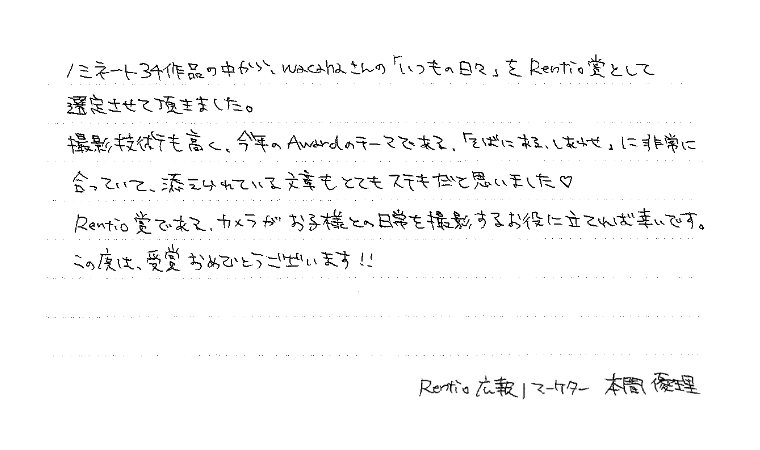 ノミネート34作品の中から、wacahaさんの「いつもの日々」をRentio賞として
選定させて頂きました。
撮影技術も高く、今年のAwardのテーマである、「そばにある、しあわせ」に非常に
合っていて、添えられている文章もとてもステキだと思いました♡
Rentio賞である、カメラがお子様との日常を撮影するお役に立てれば幸いです。
この度は、受賞おめでとうございます!!
Rentio 広報 / マーケター 本間 優理